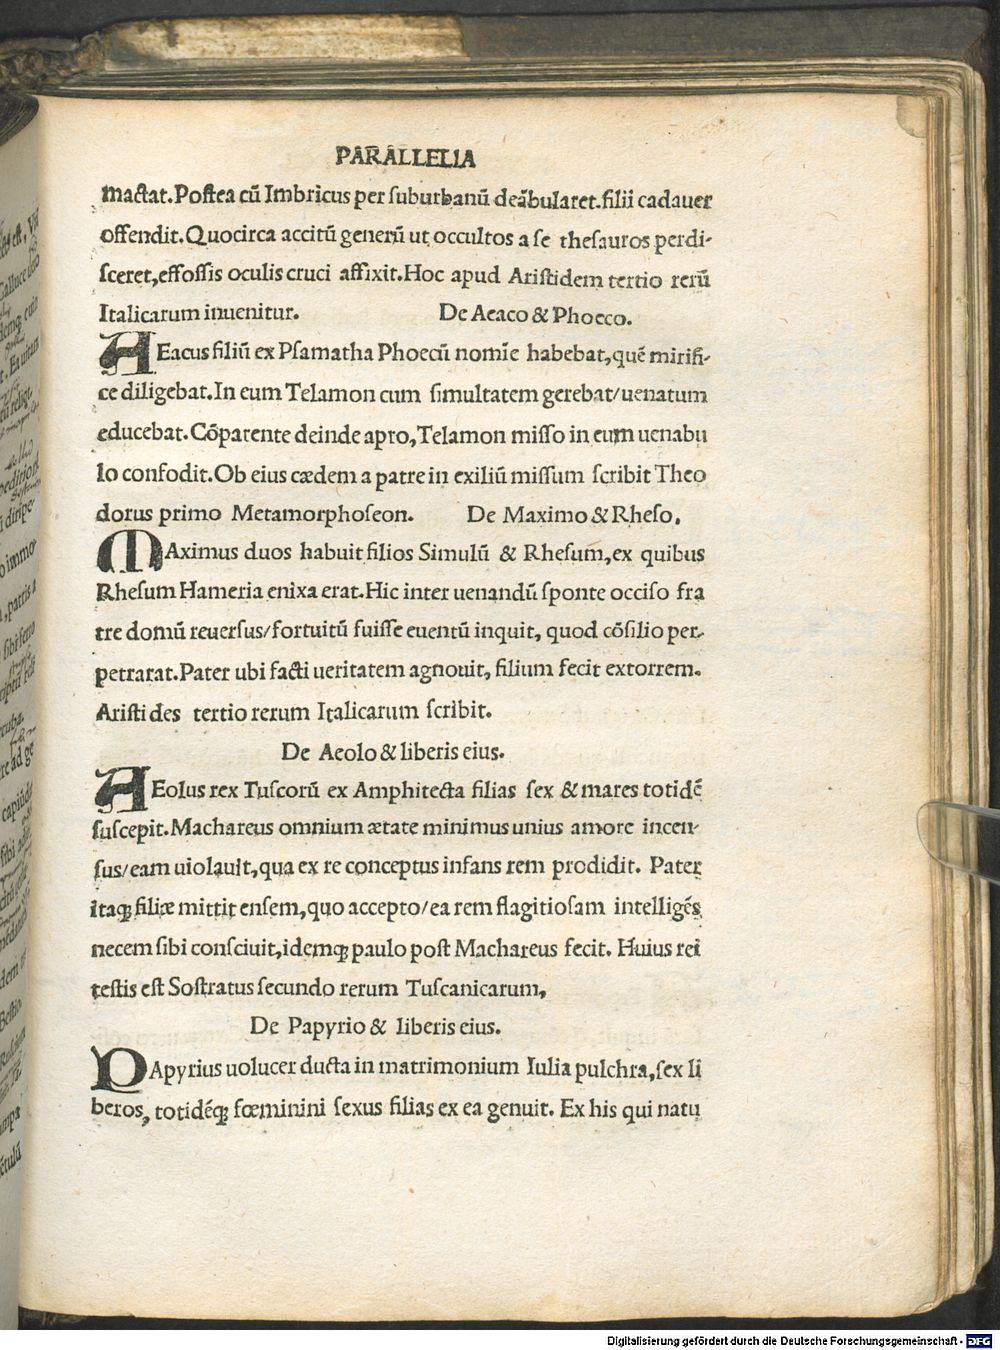 PARALLELIA
mactat.Postea cū Imbricus per suburbanū deābularet.filii cadauer
offendit.Quocirca accitū generū ut occultos a se thesauros perdi-
sceret,effossis oculis cruci affixit.Hoc apud Aristidem tertio rerū
Italicarum inuenitur. De Aeaco & Phocco.
AEacus filiū ex Psamatha Phoecū nomīe habebat,quē mirifi-
ce diligebat.In eum Telamon cum simultatem gerebat/uenatum
educebat.Cōparente deinde apro,Telamon misso in eum uenabu
lo confodit.Ob eius cædem a patre in exiliū missum scribit Theo
dorus primo Metamorphoseon. De Maximo & Rheso.
MAximus duos habuit filios Simulū & Rhesum,ex quibus
Rhesum Hameria enixa erat.Hic inter uenandū sponte occiso fra
tre domū reuersus/fortuitū fuisse euentū inquit, quod cōsilio per-
petrarat.Pater ubi facti ueritatem agnouit, filium fecit extorrem.
Aristi des tertio rerum Italicarum scribit.
De Aeolo & liberis eius.
AEolus rex Tuscorū ex Amphitecta filias sex & mares totidē
suscepit.Machareus omnium ætate minimus unius amore incen-
sus/eam uiolauit,qua ex re conceptus infans rem prodidit. Pater
itaqꝫ filiæ mittit ensem,quo accepto/ea rem flagitiosam intelligēs
necem sibi consciuit,idemqꝫ paulo post Machareus fecit. Huius rei
testis est Sostratus secundo rerum Tuscanicarum,
De Papyrio & liberis eius.
PApyrius uolucer ducta in matrimonium Iulia pulchra,sex li
beros, totidēqꝫ fœminini sexus filias ex ea genuit. Ex his qui natu
Digitalisierung gefördert durch die Deutsche Forschungsgemeinschaft - DFG